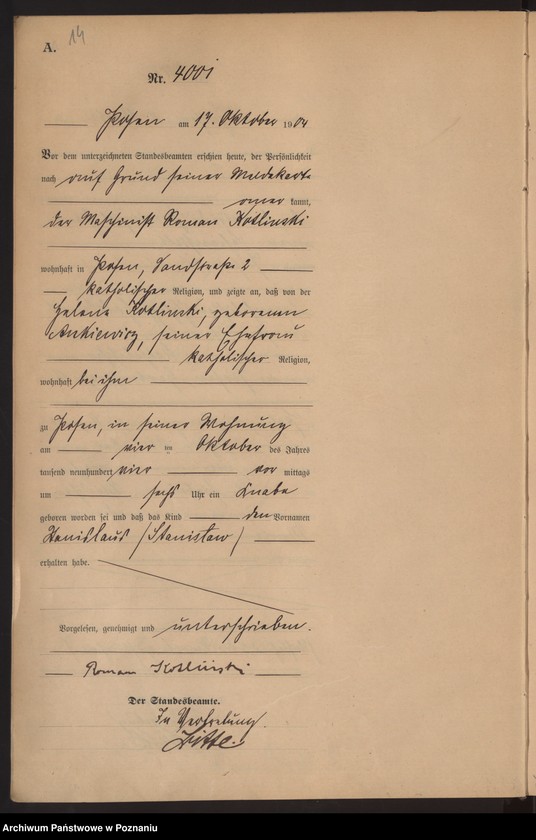 A. 14
Nr. 4001
Posen am 17. Oktober 1904
Vor dem unterzeichneten Standesbeamten erschien heute, der Persönlichkeit
nach auf Grund seiner Meldekarte
kannt,
der Maschinist Roman Kotlinski
wohnhaft in Posen, Sandstraße 2
katholischer Religion, und zeigte an, daß von der
Helene Kotlinski, geborenen
Ankiewicz, seiner Ehefrau
katholischer Religion,
wohnhaft bei ihm
zu Posen, in seiner Wohnung
am vier ten Oktober des Jahres
tausend neunhundert vier vor mittags
um sechs Uhr ein Knabe
geboren worden sei und daß das Kind den Vornamen
Stanislaus (Stanisław)
erhalten habe.
Vorgelesen, genehmigt und unterschrieben.
Roman Kotliński
Der Standesbeamte.
In Vertretung.
Archiwum Państwowe w Poznaniu